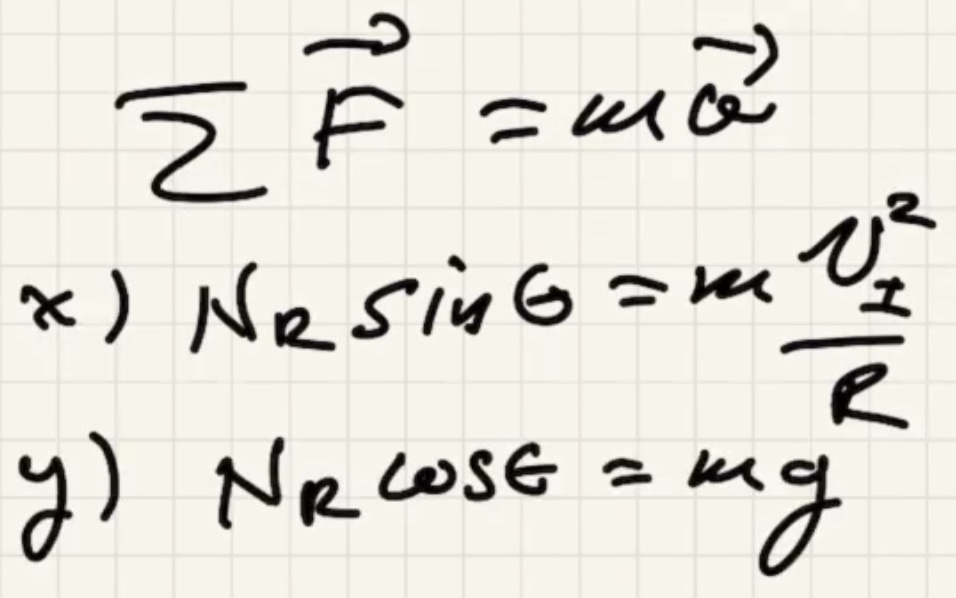 ∑ F⃗ = m a⃗
x) N_R sin θ = m v_I² / R
y) N_R cos θ = mg